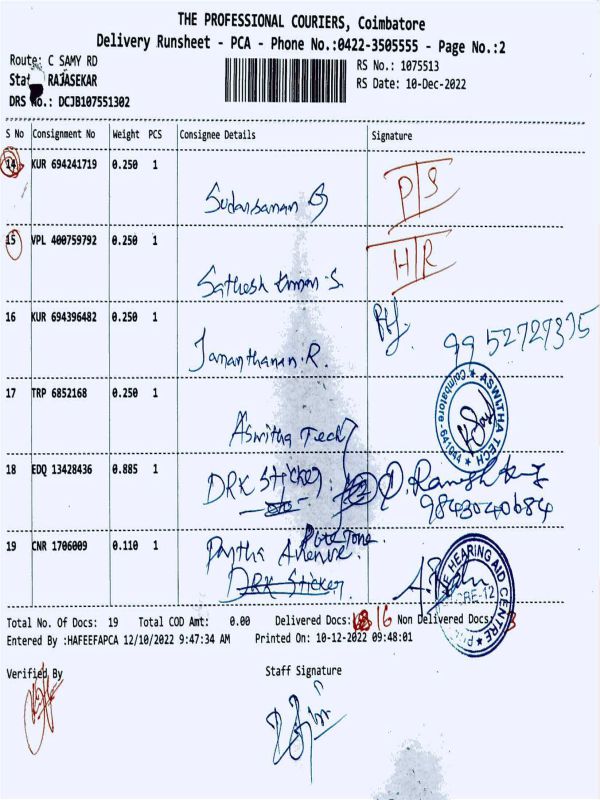 THE PROFESSIONAL COURIERS, Coimbatore
Delivery Runsheet - PCA - Phone No.:0422-3505555 - Page No.:2
Route: C SAMY RD
RS No.: 1075513
RAJASEKAR
RS Date: 10-Dec-2022
DRS No.: DCJB107551302
S No Consignment No Weight PCS Consignee Details Signature
14 KUR 694241719 0.250 1
Sudarsanan
15 VPL 400759792 0.250 1
HR
Sathesh Kumar S.
16 KUR 694396482 0.250 1
9952727335
Jananthanan. R.
17 TRP 6852168 0.250 1
ASWITHA TECH
Coimbatore-641044
Aswitha Tech
18 EDQ 13428436 0.885 1
DRK Sticker
9843040684
19 CNR 1706009 0.110 1
Partha Avenue. Pure Tone.
DRK Sticker.
HEARING AID CENTRE
CBE-12
Total No. Of Docs: 19 Total COD Amt: 0.00 Delivered Docs: 16 Non Delivered Docs: 3
Entered By :HAFEEFAPCA 12/10/2022 9:47:34 AM Printed On: 10-12-2022 09:48:01
Verified By Staff Signature